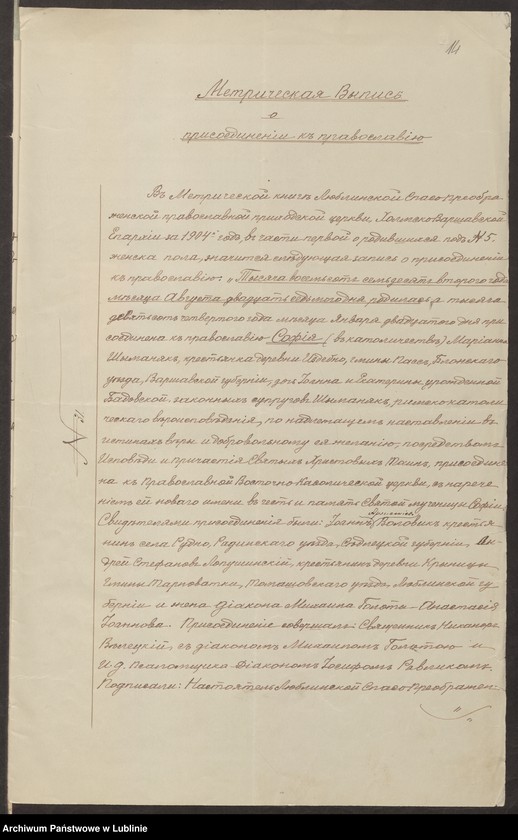 14
Метрическая Выпись
о
присоединеніи къ православію
Въ Метрической книгѣ Люблинской Спасо-Преобра-
женской православной приходской церкви, Холмско-Варшавской
Епархіи за 1904й годъ, въ части первой о родившихся подъ № 5.
женска пола, значится слѣдующая запись о присоединеніи
къ православію: „Тысяча восемьсотъ семьдесятъ второго года
мѣсяца Августа двадцать седьмого дня родилась, а тысяча
девятьсотъ четвертого года мѣсяца Января двадцатого дня при-
соединена къ православію Софія (въ католичествѣ) Маріанна
Шыманякъ, крестьянка деревни Цедетко, гмины Пассъ, Блонскаго
уѣзда, Варшавской губерніи, дочь Іоанна и Екатерины урожденной
Бадовской, законныхъ супруговъ Шыманякъ, римско-католи-
ческаго вѣроисповѣданія, по надлежащемъ наставленіи въ
истинахъ вѣры и добровольному ея желанію, посредствомъ
Исповѣди и причастія Святыхъ Христовыхъ Таинъ, присоедине-
на къ Православной Восточно-Каѳолической церкви, съ нарече-
ніемъ ей новаго имени въ честь и память Святой мученицы Софіи.
Свидѣтелями присоединенія были: Іоаннъ Воловикъ крестья-
нинъ села Рудно, Радинскаго уѣзда, Сѣдлецкой губерніи, Ан-
дрей Стефановъ Лопушинскій, крестьянинъ деревни Крыницы
гмины Тарноватка, Томашовскаго уѣзда, Люблинской гу-
берніи и жена діакона Михаила Голота - Анастасія
Іоаннова. Присоединеніе совершалъ: Священникъ Никаноръ
съ діакономъ Михаиломъ Голотою и
И. д. Псаломщика діакономъ Іосифомъ Равликомъ.
Подписали: Настоятель Люблинской Спасо-Преображен-